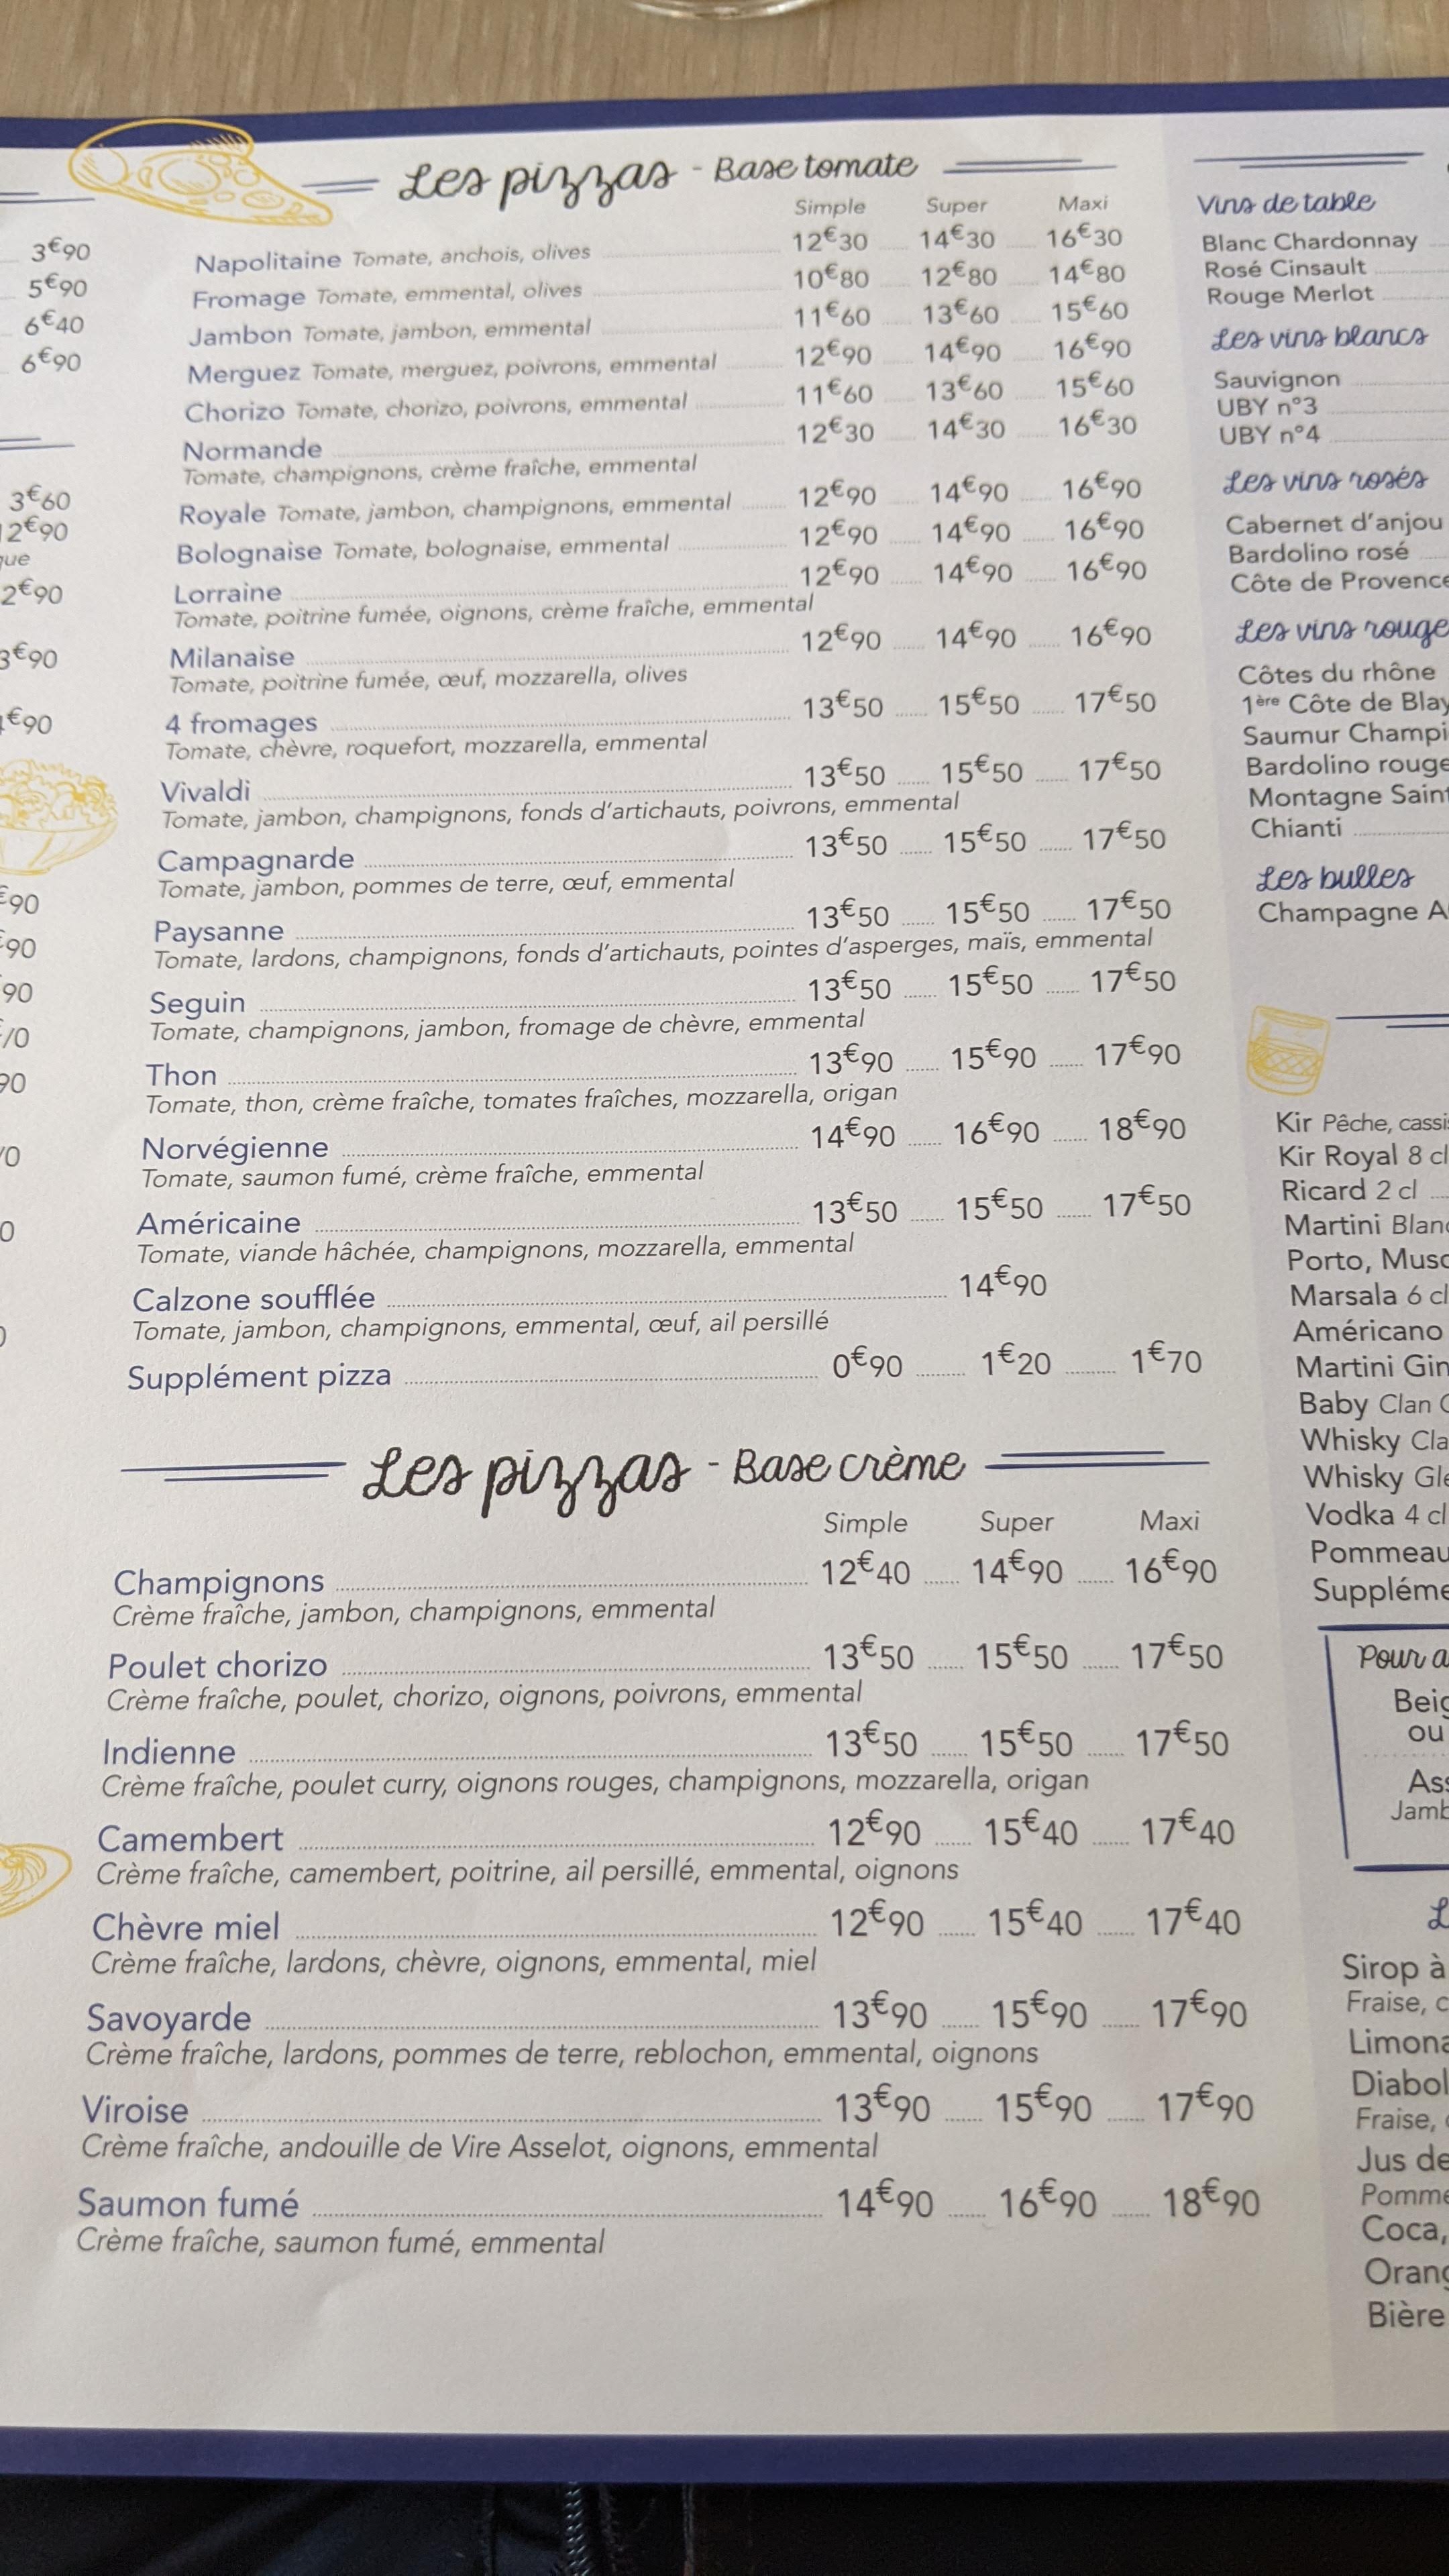 3€90
5€90
6€40
6€90
3€60
2€90
2€90
3€90
€90
€90
€90
90
/0
90
Les pizzas - Base tomate
Simple Super Maxi
Napolitaine Tomate, anchois, olives 12€30 14€30 16€30
Fromage Tomate, emmental, olives 10€80 12€80 14€80
Jambon Tomate, jambon, emmental 11€60 13€60 15€60
Merguez Tomate, merguez, poivrons, emmental 12€90 14€90 16€90
Chorizo Tomate, chorizo, poivrons, emmental 11€60 13€60 15€60
Normande 12€30 14€30 16€30
Tomate, champignons, crème fraîche, emmental
Royale Tomate, jambon, champignons, emmental 12€90 14€90 16€90
Bolognaise Tomate, bolognaise, emmental 12€90 14€90 16€90
Lorraine 12€90 14€90 16€90
Tomate, poitrine fumée, oignons, crème fraîche, emmental
Milanaise 12€90 14€90 16€90
Tomate, poitrine fumée, œuf, mozzarella, olives
4 fromages 13€50 15€50 17€50
Tomate, chèvre, roquefort, mozzarella, emmental
Vivaldi 13€50 15€50 17€50
Tomate, jambon, champignons, fonds d'artichauts, poivrons, emmental
Campagnarde 13€50 15€50 17€50
Tomate, jambon, pommes de terre, œuf, emmental
Paysanne 13€50 15€50 17€50
Tomate, lardons, champignons, fonds d'artichauts, pointes d'asperges, maïs, emmental
Seguin 13€50 15€50 17€50
Tomate, champignons, jambon, fromage de chèvre, emmental
Thon 13€90 15€90 17€90
Tomate, thon, crème fraîche, tomates fraîches, mozzarella, origan
Norvégienne 14€90 16€90 18€90
Tomate, saumon fumé, crème fraîche, emmental
Américaine 13€50 15€50 17€50
Tomate, viande hâchée, champignons, mozzarella, emmental
Calzone soufflée 14€90
Tomate, jambon, champignons, emmental, œuf, ail persillé
Supplément pizza 0€90 1€20 1€70
Les pizzas - Base crème
Simple Super Maxi
Champignons 12€40 14€90 16€90
Crème fraîche, jambon, champignons, emmental
Poulet chorizo 13€50 15€50 17€50
Crème fraîche, poulet, chorizo, oignons, poivrons, emmental
Indienne 13€50 15€50 17€50
Crème fraîche, poulet curry, oignons rouges, champignons, mozzarella, origan
Camembert 12€90 15€40 17€40
Crème fraîche, camembert, poitrine, ail persillé, emmental, oignons
Chèvre miel 12€90 15€40 17€40
Crème fraîche, lardons, chèvre, oignons, emmental, miel
Savoyarde 13€90 15€90 17€90
Crème fraîche, lardons, pommes de terre, reblochon, emmental, oignons
Viroise 13€90 15€90 17€90
Crème fraîche, andouille de Vire Asselot, oignons, emmental
Saumon fumé 14€90 16€90 18€90
Crème fraîche, saumon fumé, emmental
Vins de table
Blanc Chardonnay
Rosé Cinsault
Rouge Merlot
Les vins blancs
Sauvignon
UBY n°3
UBY n°4
Les vins rosés
Cabernet d'anjou
Bardolino rosé
Côte de Provence
Les vins rouge
Côtes du rhône
1ère Côte de Blay
Saumur Champi
Bardolino rouge
Montagne Saint
Chianti
Les bulles
Champagne A
Kir Pêche, cassi
Kir Royal 8 cl
Ricard 2 cl
Martini Blanc
Porto, Musc
Marsala 6 cl
Américano
Martini Gin
Baby Clan
Whisky Cla
Whisky Gle
Vodka 4 cl
Pommeau
Supplème
Pour a
Beig
ou
Ass
Jamb
L
Sirop à
Fraise, c
Limona
Diabol
Fraise,
Jus de
Pomme
Coca,
Orang
Bière